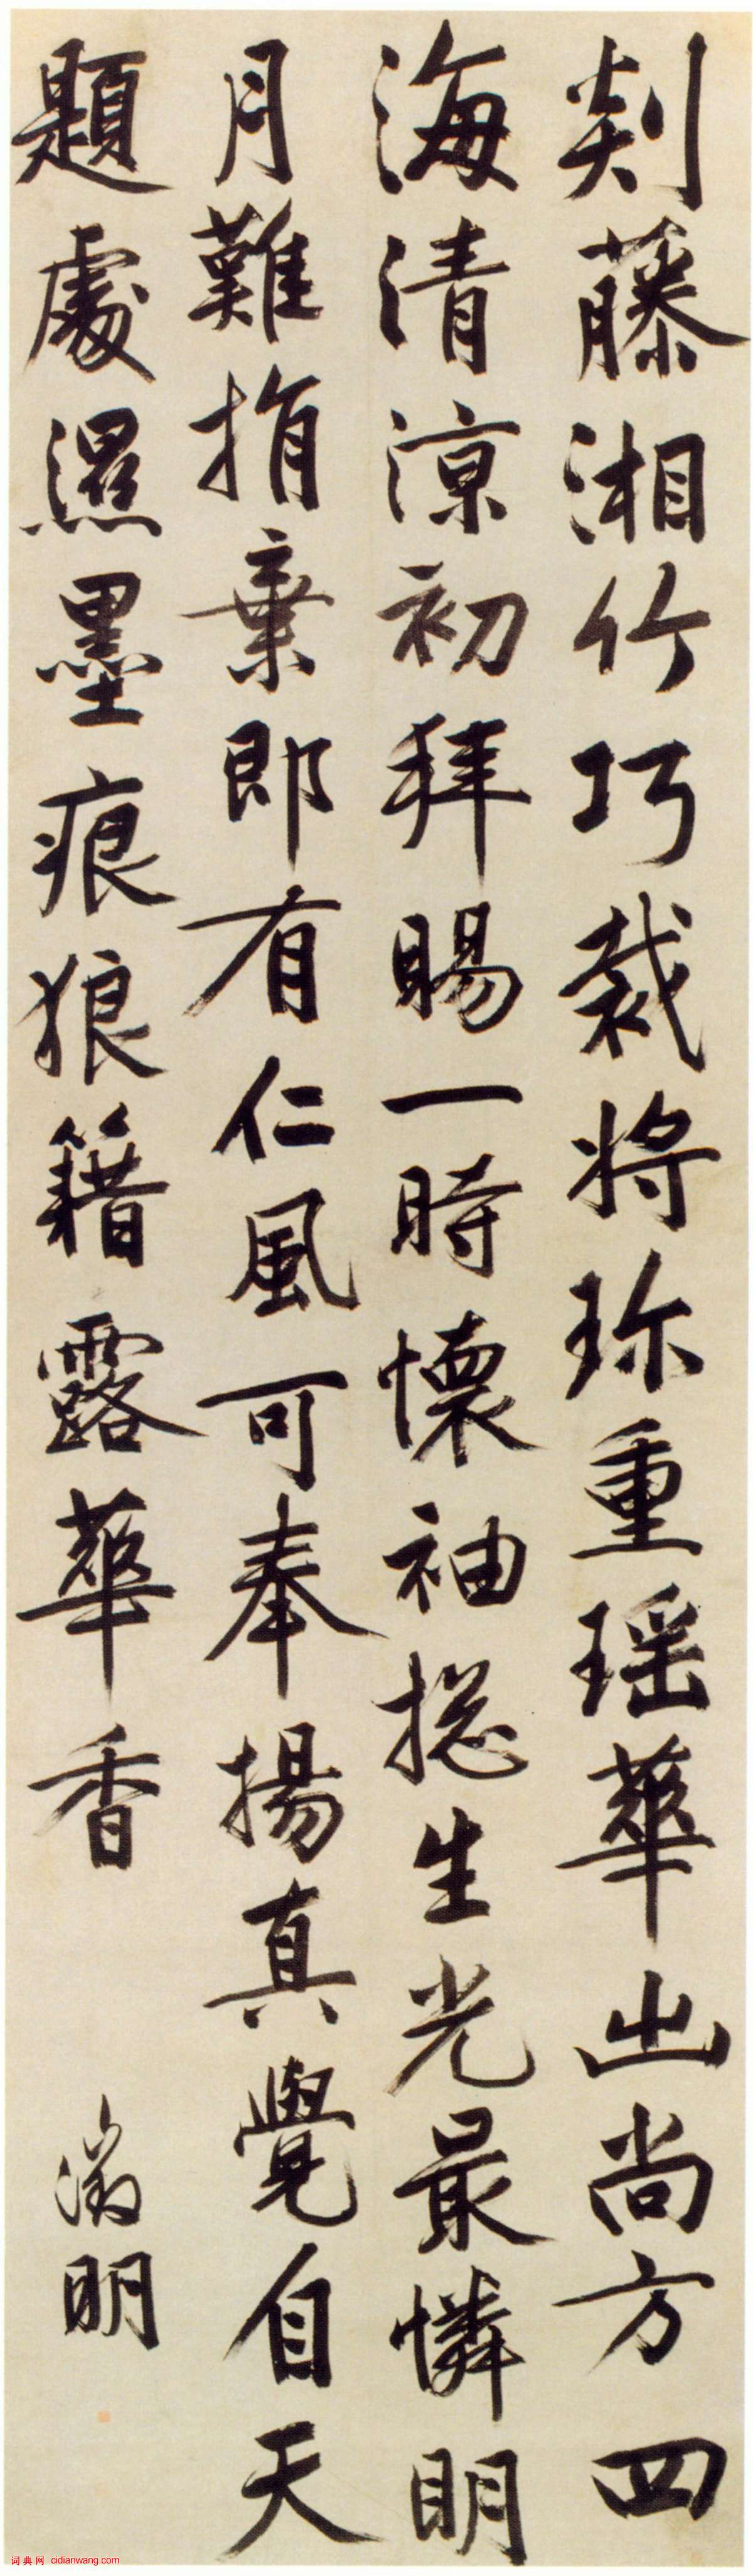 剡藤湘竹巧裁将珎重瑶華出尚方四
海清涼初拜賜一時懷袖揔生光最憐明
月難捐棄即有仁風可奉揚真覺自天
題處濕墨痕狼籍露華香
徵明
词典网 cidianwang.com